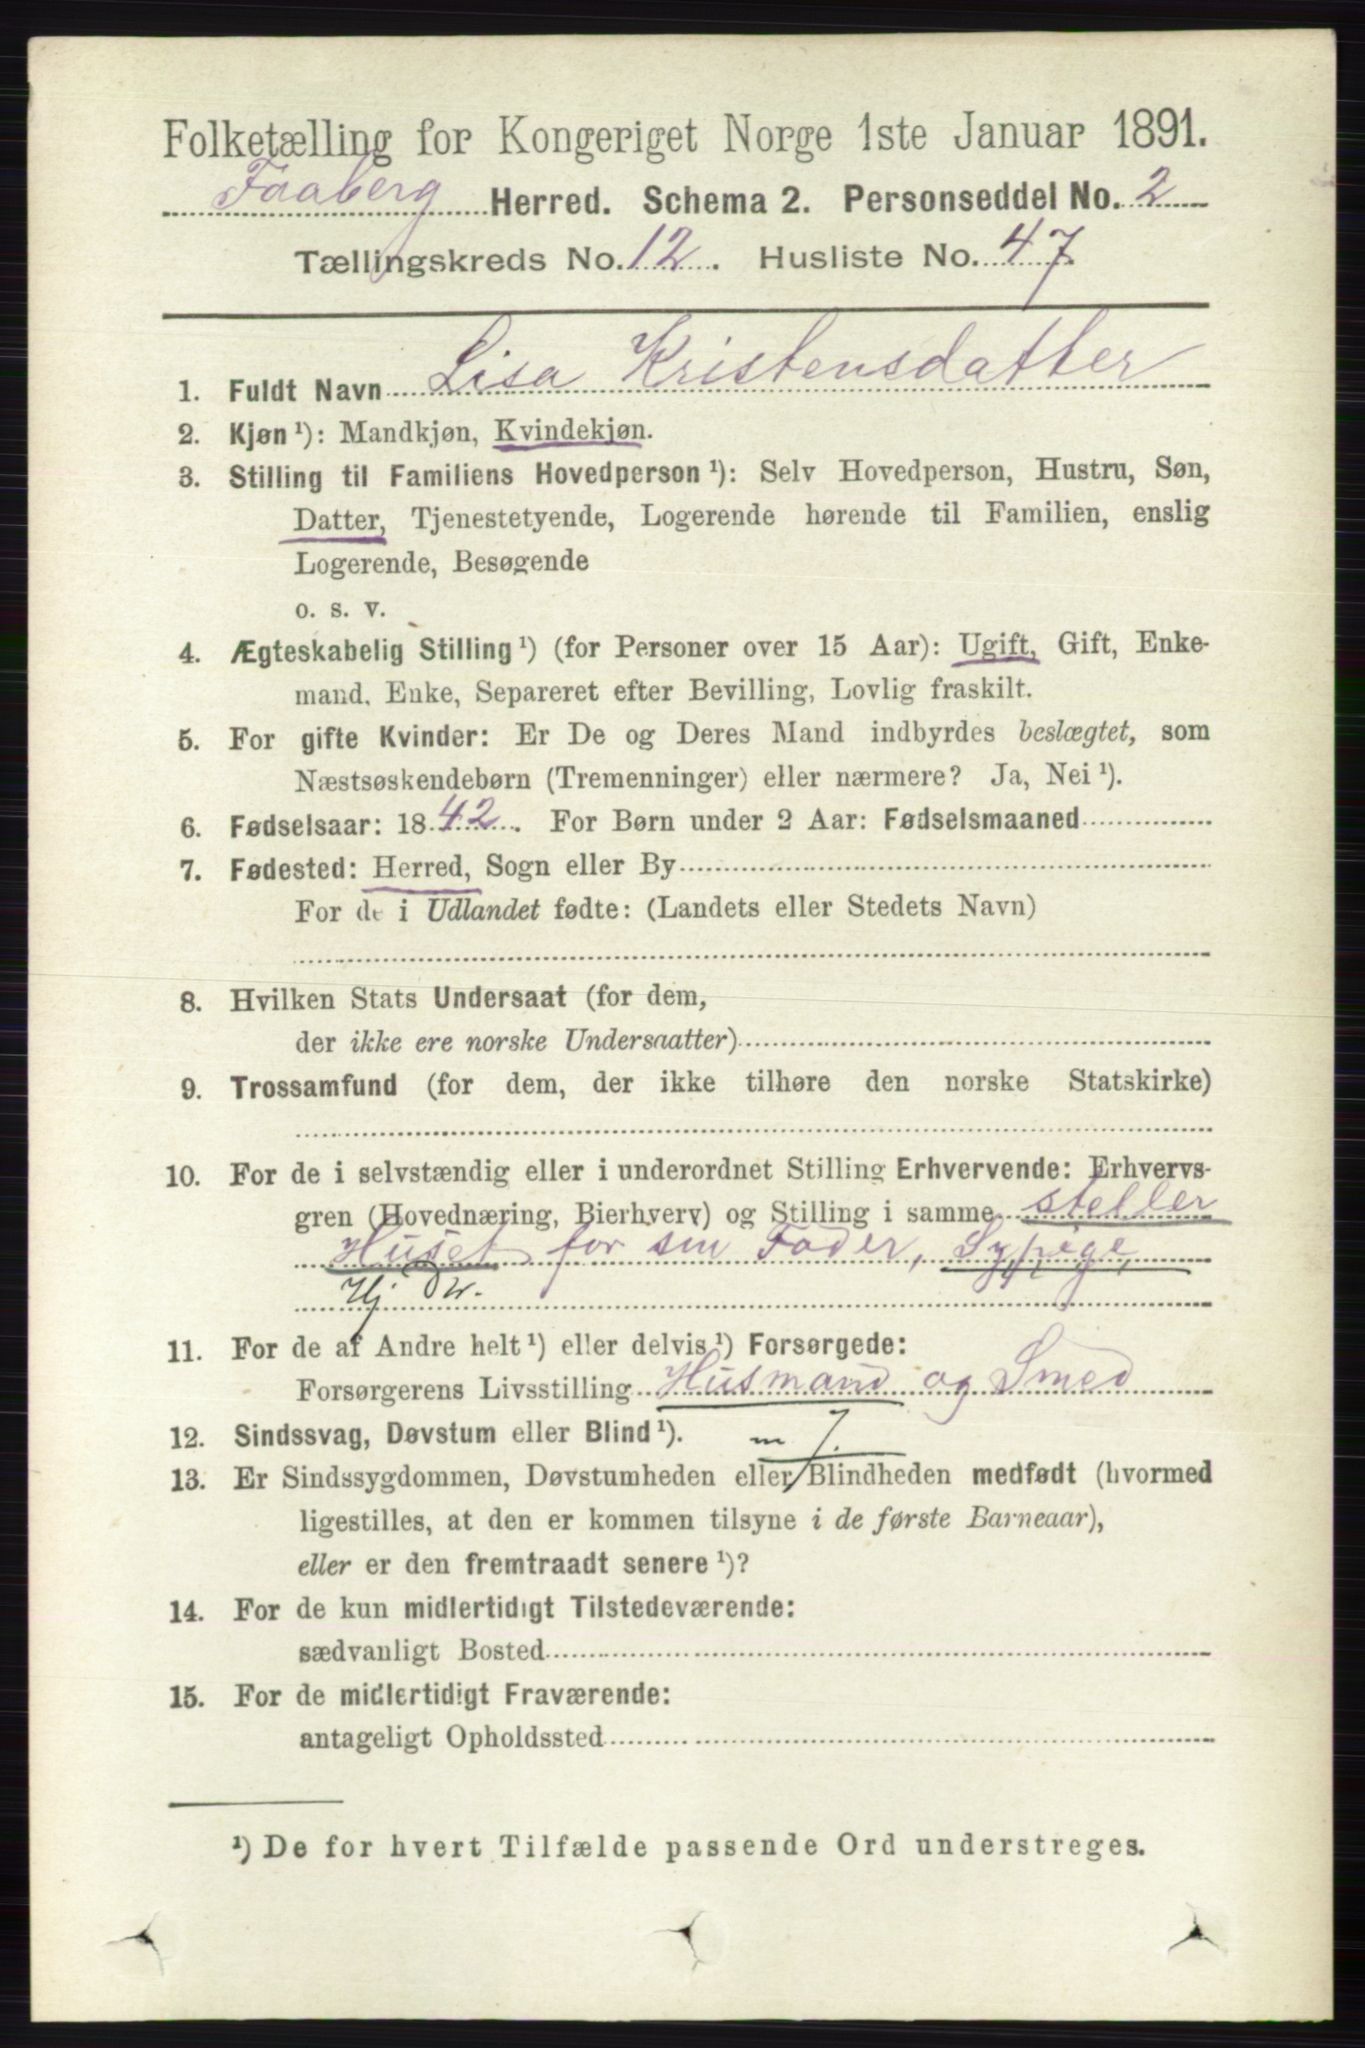 Folketælling for Kongeriget Norge 1ste Januar 1891.
Faaberg Herred. Schema 2. Personseddel No. 2
Tællingskreds No. 12. Husliste No. 47.
1. Fuldt Navn Lisa Kristensdatter
2. Kjøn¹): Mandkjøn, Kvindekjøn.
3. Stilling til Familiens Hovedperson¹): Selv Hovedperson, Hustru, Søn,
Datter, Tjenestetyende, Logerende hørende til Familien, enslig
Logerende, Besøgende
o. s. v.
4. Ægteskabelig Stilling¹) (for Personer over 15 Aar): Ugift, Gift, Enke-
mand, Enke, Separeret efter Bevilling, Lovlig fraskilt.
5. For gifte Kvinder: Er De og Deres Mand indbyrdes beslægtet, som
Næstsøskendebørn (Tremenninger) eller nærmere? Ja, Nei¹).
6. Fødselsaar: 1842. For Børn under 2 Aar: Fødselsmaaned
7. Fødested: Herred, Sogn eller By
For de i Udlandet fødte: (Landets eller Stedets Navn)
8. Hvilken Stats Undersaat (for dem,
der ikke ere norske Undersaatter)
9. Trossamfund (for dem, der ikke tilhøre den norske Statskirke)
10. For de i selvstændig eller i underordnet Stilling Erhvervende: Erhvervs-
gren (Hovednæring, Bierhverv) og Stilling i samme steller
Huset for sin Fader, Sypige
Hj Dr.
11. For de af Andre helt¹) eller delvis¹) Forsørgede:
Forsørgerens Livsstilling Husmand og Smed
12. Sindssvag, Døvstum eller Blind¹). m 7.
13. Er Sindssygdommen, Døvstumheden eller Blindheden medfødt (hvormed
ligestilles, at den er kommen tilsyne i de første Barneaar),
eller er den fremtraadt senere¹)?
14. For de kun midlertidigt Tilstedeværende:
sædvanligt Bosted
15. For de midlertidigt Fraværende:
antageligt Opholdssted
¹) De for hvert Tilfælde passende Ord understreges.